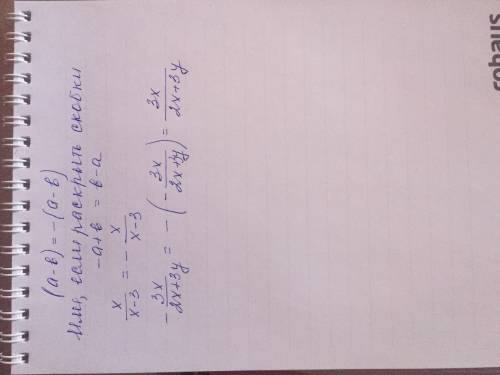 (a-в) = -(a-в)
Или, если раскрыть скобки
-a+в = в-a
x/(x-3) = - x/(x-3)
- 3x/(2x+3y) = - (- 3x/(2x+3y)) = 3x/(2x+3y)